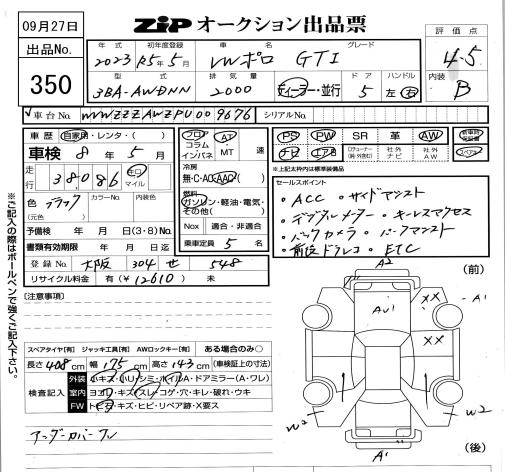 09月27日
出品No.
350
ZiP オークション出品票
評価点
4.5
内装
B
年式 初年度登録 車名 グレード
2023 R5年5月 VWポロ GTI
型式 排気量 ドア ハンドル
3BA-AWDNN 2000 ディーラー・並行 5 左・右
車台No. WVWZZZAWZPU009676 シリアルNo.
車歴 自家用・レンタ・( )
車検 8年5月
走行 38,086 キロ マイル
色 ブラック カラーNo. 内装色
(元色)
予備検 年 月 日(3・8)No.
書類有効期限 年 月 日迄
登録No. 大阪 304 せ 548
リサイクル料金 有(¥12610) 未
フロア コラム インパネ AT・MT 速
冷房
無・C・AC・AAC
燃料
ガソリン・軽油・電気・
その他( )
Nox 適合・非適合
乗車定員 5名
PS PW SR 革 AW
ナビ エアB 社外ナビ 社外AW スペアキー
※上記太枠内は標準装備品
セールスポイント
・ACC ・サイドアシスト
・デジタルメーター・キーレスアクセス
・バックカメラ・パークアシスト
・前後ドラレコ・ETC
[注意事項]
スペアタイヤ[有] ジャッキ工具[有] AWロックキー[有] ある場合のみ○
長さ 408cm 幅 175cm 高さ 143cm (車検証上の寸法)
検査記入
外装 小キズ・小リ・シミ・ホイルA・ドアミラー(A・ワレ)
室内 ヨゴレ・キズ・スレ・コゲ・穴・キレ・破れ・ウキ
FW トビ・キズ・ヒビ・リペア跡・X要ス
アンダーカバーワレ
※ご記入の際はボールペンで強くご記入下さい。
(前)
A2
AU1
XX
A1
XX
W2
W2
A1
(後)